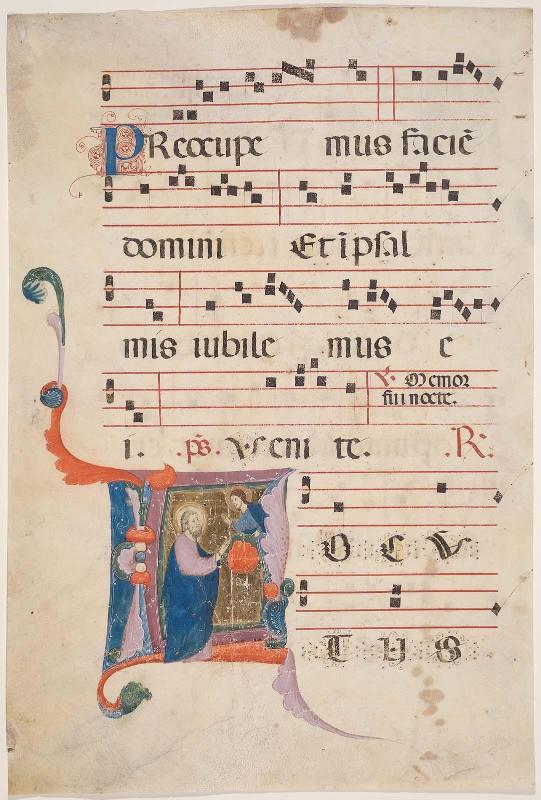 PReocupe mus faciē
domini Et īpsal
mis iubile mus e
℣. Memor
fui nocte.
i. .ps. Veni te. .R.
L OCV
TUS